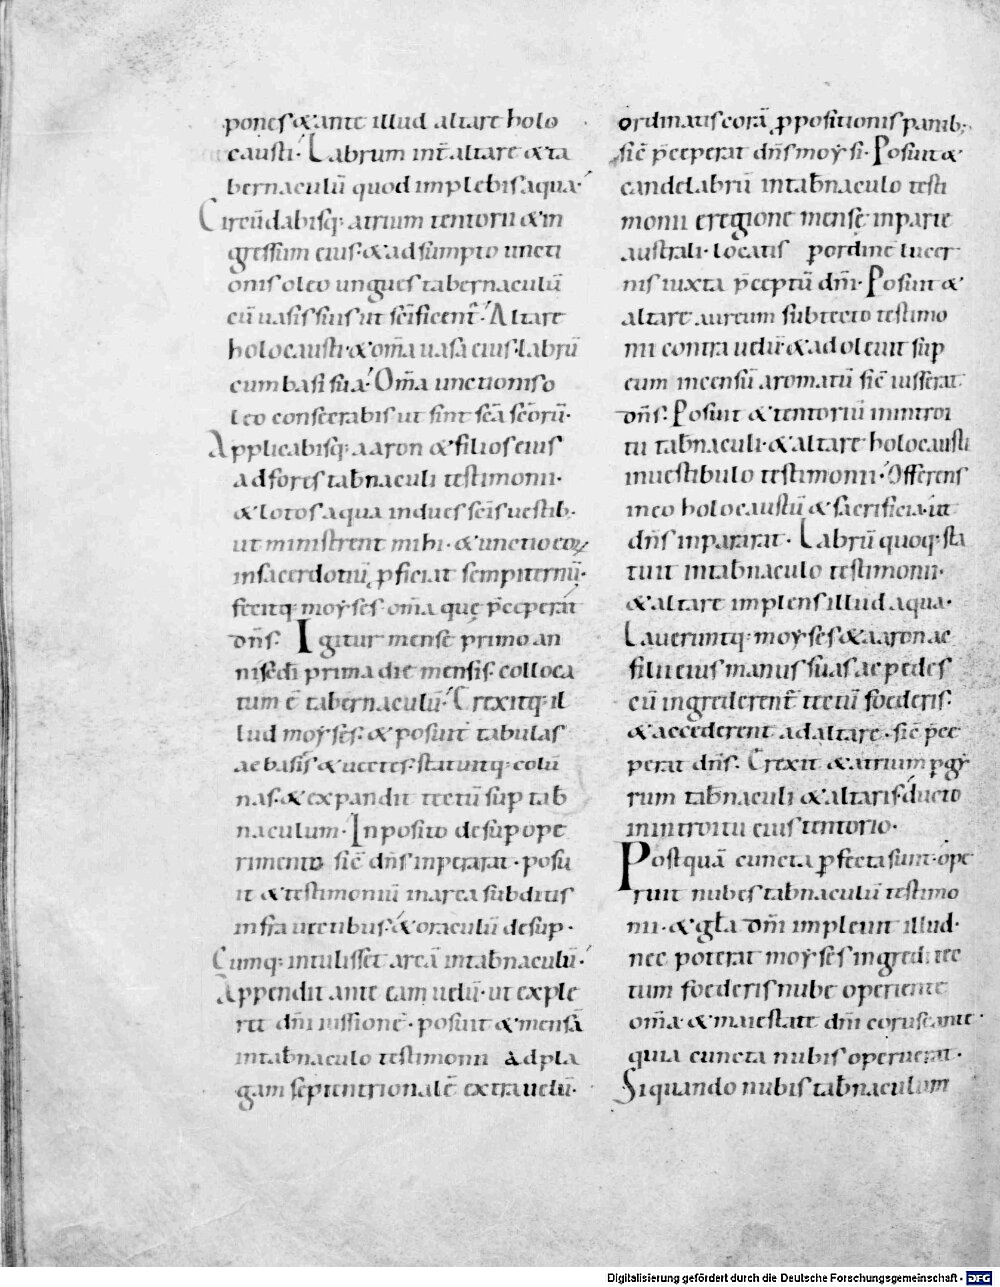 pones & ante illud altare holo
causti· Labrum int̄ altare & ta
bernaculū quod implebis aqua·
Circūdabisq; atrium tentorii & in
gressum eius· & adsumpto uncti
onis oleo ungues tabernaculū
cū uasis suis ut sc̄ificent̄· Altare
holocausti· & om̄a uasa eius· labrū
cum basi sua· Om̄a unctionis o
leo consecrabis ut sint sc̄a sc̄orū·
Applicabisq; aaron & filios eius
ad fores tab̄naculi testimonii·
& lotos aqua indues sc̄is uestib·
ut ministrent mihi· & unctio eoꝝ
in sacerdotiū ꝓficiat sempiternū·
fecitq; moyses om̄a que p̄ceperat
dn̄s· Igitur mense primo an
ni sedi prima die mensis· colloca
tum ē tabernaculū· Erexitq; il
lud moyses· & posuit tabulas
ac basis & uectes· statuitq; colū
nas· & expandit tectū sup tab̄
naculum· Inposito desup ope
rimento sic̄ dn̄s inperarat· posu
it & testimoniū in arca subditis
infra uectibus· & oraculū desup·
Cumq; intulisset arcā in tab̄naculū·
Appendit ante eam uelū· ut exple
ret dn̄i iussionē· posuit & mensā
in tab̄naculo testimonii ad pla
gam septentrionalē extra uelū·
ordinatis corā ꝓpositionis panib;
sic̄ p̄ceperat dn̄s moysi· Posuit &
candelabrū in tab̄naculo testi
monii e regione mense in parte
australi· locatis p ordinē lucer
nis iuxta p̄ceptū dn̄i· Posuit &
altare aureum sub tecto testimo
nii contra uelū· & adoleuit sup
eum incensū aromatū sic̄ iusserat
dn̄s· Posuit & tentoriū in introi
tu tab̄naculi· & altare holocausti
in uestibulo testimonii· Offerens
in eo holocaustū & sacrificia· ut
dn̄s inpararat· Labrū quoq; sta
tuit in tab̄naculo testimonii·
& altare implens illud aqua·
Laueruntq; moyses & aaron ac
filii eius manus suas ac pedes
cū ingrederent̄ tectū foederis·
& accederent ad altare· sic̄ p̄ce
perat dn̄s· Erexit & atrium p gy
rum tab̄naculi & altaris· ducto
in introitu eius tentorio·
Postquā cuncta pfecta sunt· ope
ruit nubes tab̄naculū testimo
nii· & gl̄a dn̄i impleuit illud·
nec poterat moyses ingredi tec
tum foederis nube operiente
om̄a· & maiestate dn̄i coruscante·
quia cuncta nubis operuerat·
Si quando nubis tab̄naculum
Digitalisierung gefördert durch die Deutsche Forschungsgemeinschaft - DFG